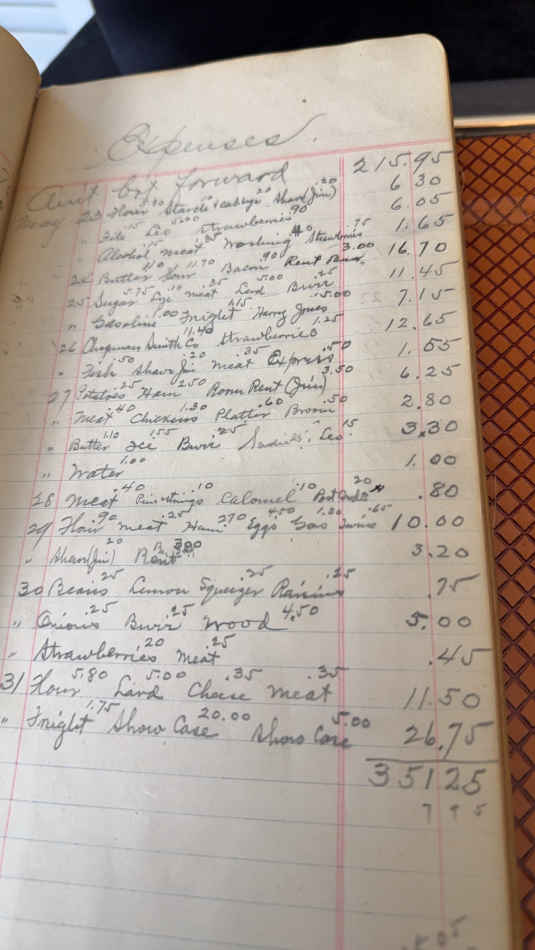 Expenses.
Amt bgt forward 215.95
May 23 Flour .90 Starch Cabbage .20 Shave (Jim) .20 6 30
" .15 Ice 5.00 Strawberries .90 6.05
" Alcohol .15 meat .35 Washing Strawberries .75 1.65
24 Butter .110 Flour 11.70 Bacon .90 Rent 3.00 16.70
25 Sugar 5.75 Lye .10 meat .25 Lard 5.00 .25 11.45
" Gasoline 1.00 Frieght 1.15 Harry Jones 5.00 7.15
26 Chapman Smith Co 11.40 Strawberries 1.25 12.65
" Fish .50 Shave Jim .20 meat .35 Express .50 1.55
27 Potatoes .25 Ham 2.50 Room Rent (Jim) 3.50 6.25
" Meat .40 Chickens 1.30 Platter .60 Broom .50 2.80
" Butter 1.10 Ice 1.55 .25 Ice .15 3.30
" Water 1.00 1.00
28 Meat .40 .10 Calomel .10 .20 .80
29 Flour .90 meat .25 Ham 2.70 Eggs 4.50 Gas 1.20 .65 10.00
" Shave (Jim) .20 Rent 3.00 3.20
30 Beans .25 Lemon Squeezer .25 Raisins .25 .75
" Onions .25 .25 wood 4.50 5.00
" Strawberries .20 meat .25 .45
31 Flour 5.80 Lard 5.00 Cheese .35 meat .35 11.50
" Frieght 1.75 Show Case 20.00 Show Case 5.00 26.75
351 25
7 9 5